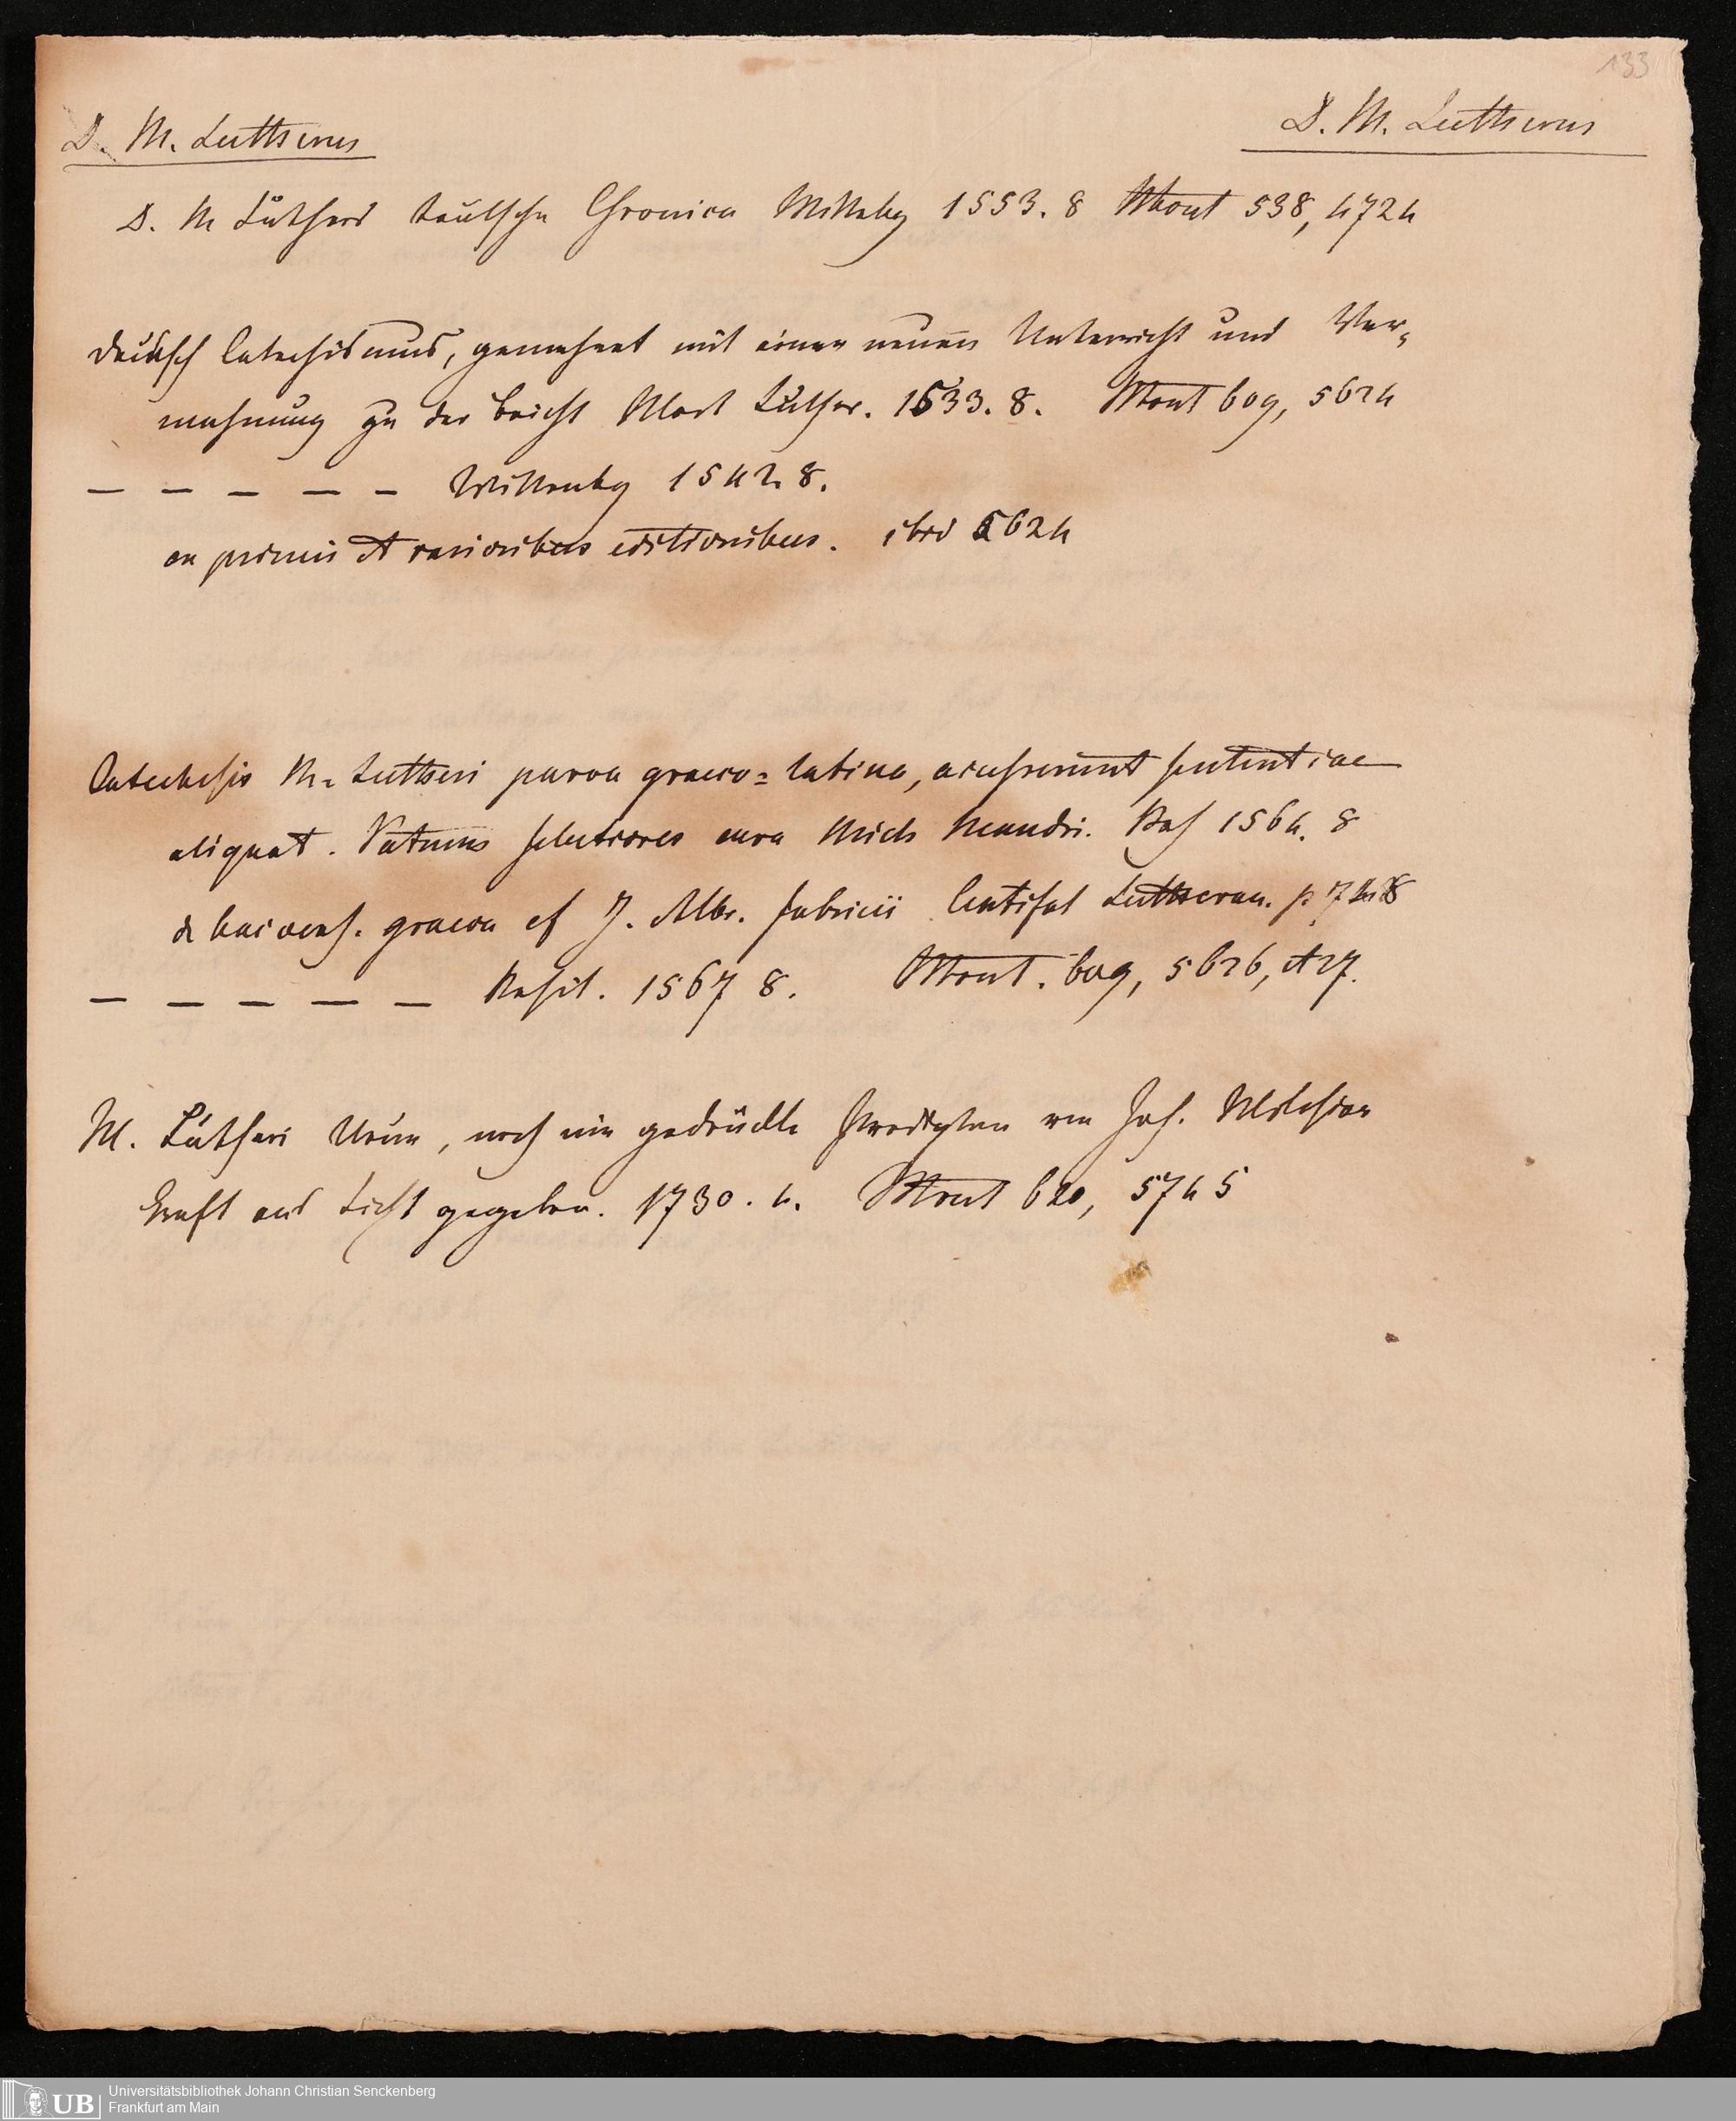 133
D. M. Lutherus
D. M. Lutherus
D. M Luthers teutsche Chronica Wittebg 1553. 8 Mont 538, 4724
Deutsch Catechismus, gemehret mit einer neuen Unterricht und Ver-
mahnung zu der Beicht Mart Luther. 1533. 8. Mont 609, 5624
— — — — — Wittenbg 1542. 8.
ex primis et rarioribus editionibus. ibid 5624
Catechesis M. Lutheri parva graeco-latina, accesserunt sententiae
aliquot. Patrum selectiores cura Mich Neandri. Bas 1564. 8
de hac graeca cf J. Alb. Fabricii Centifol Lutheran. p
— — — — — Basil. 1567 8. Mont. 609, 5626, et 27.
M. Lutheri Neun, noch nie gedruckte Predigten von Joh. Melchior
Kraft ans Licht gegeben. 1730. 4. Mont 620, 5745
UB
Universitätsbibliothek Johann Christian Senckenberg
Frankfurt am Main